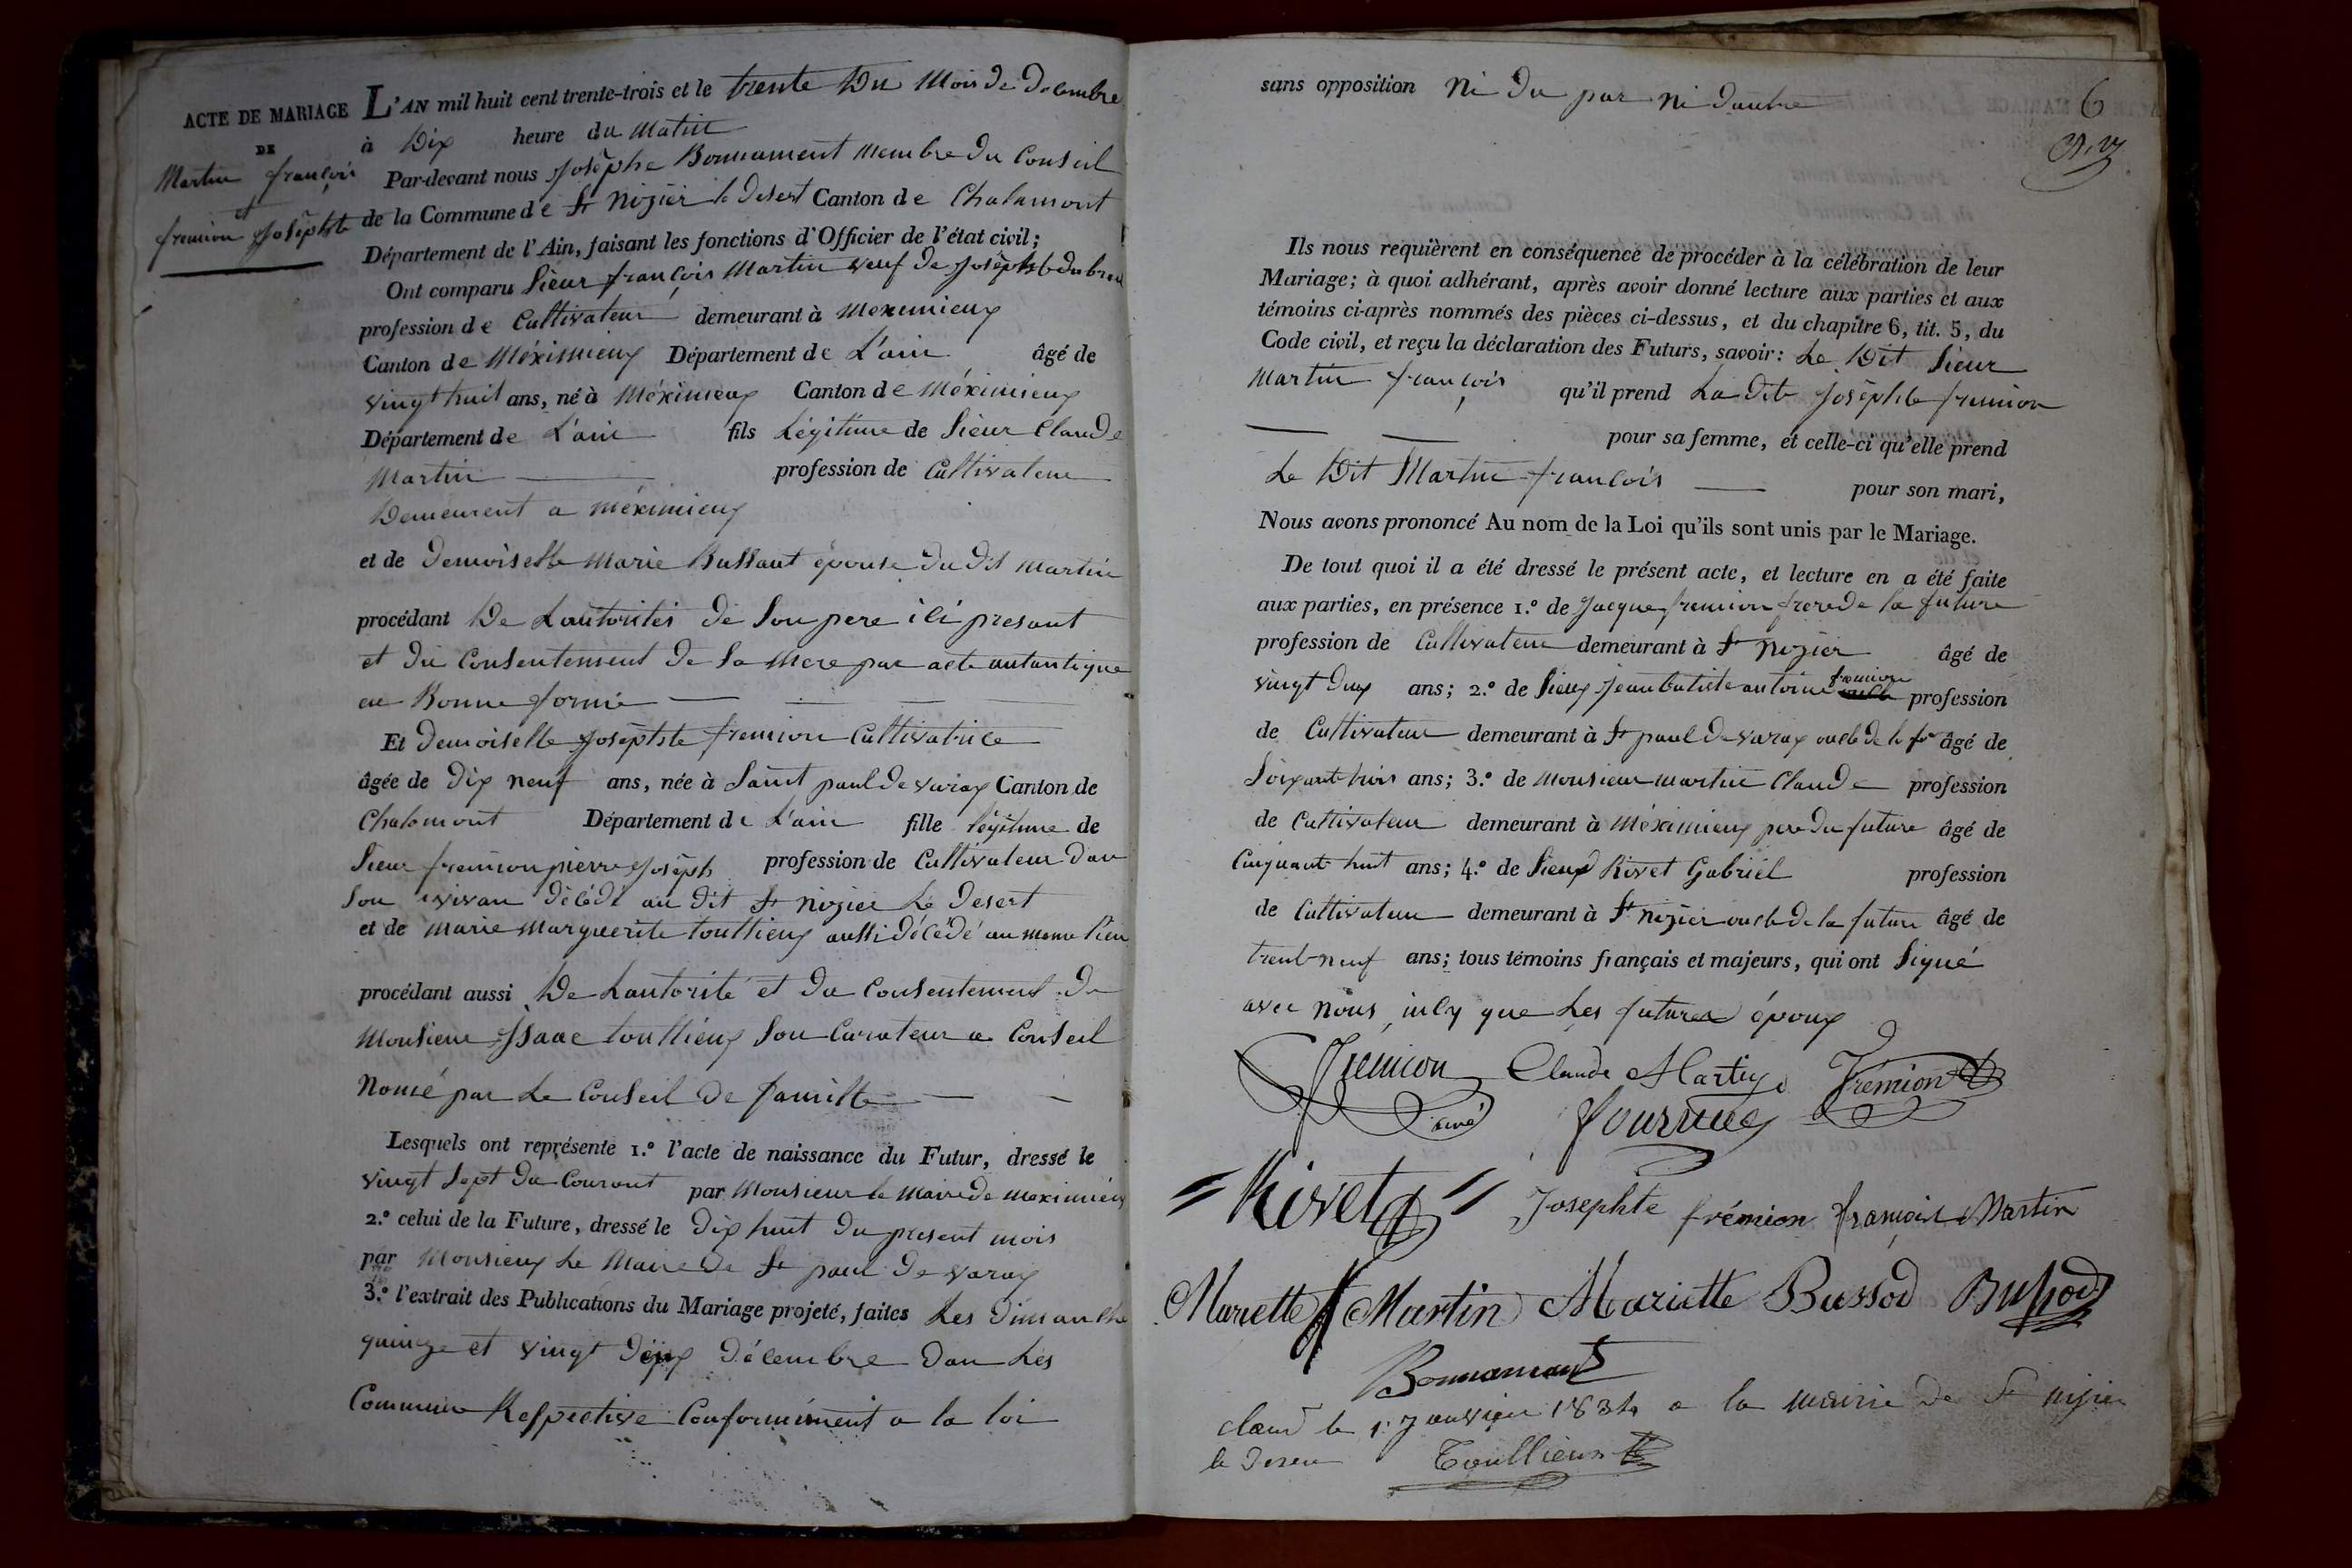 ACTE DE MARIAGE
DE
Martin françois
et
fremion Josephte
L'AN mil huit cent trente-trois et le trente Du Mois de Decembre
à Dix heure du Matin
Par-devant nous Josephe Bonnament Membre du Conseil
de la Commune de St Nizier le Desert Canton de Chalamont
Département de l'Ain, faisant les fonctions d'Officier de l'état civil;
Ont comparu Sieur françois Martin veuf de Josephte
profession de Cultivateur demeurant à Meximieux
Canton de Méximieux Département de L'ain âgé de
vingt huit ans, né à Méximieux Canton de Méximieux
Département de L'ain fils Légitime de Sieur Claude
Martin profession de Cultivateur
Demeurent a Méximieux
et de Demoiselle Marie Bussaut épouse du dit Martin
procédant De Lautorités de Son pere ici presant
et du Consentement de Sa Mere par acte autantique
en Bonne forme
Et Demoiselle Josephte fremion Cultivatrice
âgée de Dix neuf ans, née à Saint paul de varax Canton de
Chalamont Département de L'ain fille légitime de
Sieur fremion pierre Joseph profession de Cultivateur dan
Son vivan Décédé au dit St nizier Le Desert
et de Marie Marguerite toullieux aussi décédé au meme lieu
procédant aussi De Lautorité et du Consentement de
Monsieur Isaac toullieux Son Curateur a Conseil
Nomé par Le Conseil de famille
Lesquels ont représente 1.º l'acte de naissance du Futur, dressé le
vingt Sept du Courant par Monsieur le Maire de Meximieux
2.º celui de la Future, dressé le Dix huit du present mois
par Monsieux Le Maire de St paul de varax
3.º l'extrait des Publications du Mariage projeté, faites Les dimanche
quinze et vingt deux décembre dan Les
Commune Respective Conformément a la loi
sans opposition Ni Du par ni Dautre
6
Ils nous requièrent en conséquence de procéder à la célébration de leur
Mariage; à quoi adhérant, après avoir donné lecture aux parties et aux
témoins ci-après nommés des pièces ci-dessus, et du chapitre 6, tit. 5, du
Code civil, et reçu la déclaration des Futurs, savoir: Le Dit Sieur
Martin françois qu'il prend La Dite Josephte fremion
pour sa femme, et celle-ci qu'elle prend
Le Dit Martin françois pour son mari,
Nous avons prononcé Au nom de la Loi qu'ils sont unis par le Mariage.
De tout quoi il a été dressé le présent acte, et lecture en a été faite
aux parties, en présence 1.º de Jacque fremion frere de la future
profession de Cultivateur demeurant à St Nizier âgé de
vingt deux ans; 2.º de Sieux Jean batiste antoine fremion profession
de Cultivateur demeurant à St paul de varax oncle de la fr âgé de
Soixante trois ans; 3.º de Monsieur Martin Claude profession
de Cultivateur demeurant à Méximieux pere du future âgé de
Cinquante huit ans; 4.º de Sieux Rivet Gabriel profession
de Cultivateur demeurant à St Nizier oncle de la future âgé de
trente neuf ans; tous témoins français et majeurs, qui ont Signé
avec nous que Les futures époux
fremion Claude Martin Frémion
aine
Rivet Josephte frémion françois Martin
Mariette Martin Mariette Bussod Bussod
Bonnamant
le 1 Janvier 1834 a la mairie de St nizier
le deser Toullieux